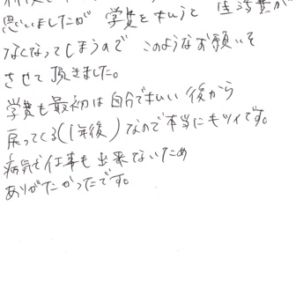 思いましたが 学費を払うと 生活費が
なくなってしまうので このようなお願いを
させて頂きました。
学費も最初は自分で払い 後から
戻ってくる(1年後)なので本当にキツイです。
病気で仕事も出来ないため
ありがたかったです。